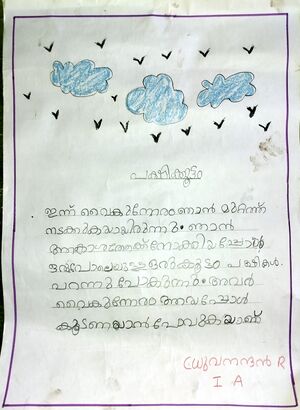 പക്ഷിക്കൂട്ടം
ഇന്ന് വൈകുന്നേരം ഞാൻ മുറ്റത്ത്
നടക്കുകയായിരുന്നു. ഞാൻ
ആകാശത്തേക്ക് നോക്കിയപ്പോൾ
ഒരുപോലെയുള്ള ഒരുകൂട്ടം പക്ഷികൾ
പറന്നു പോകുന്നു. അവർ
വൈകുന്നേരം ആയപ്പോൾ
കൂടണയാൻ പോവുകയാണ്
ധ്രുവനന്ദൻ R
I A